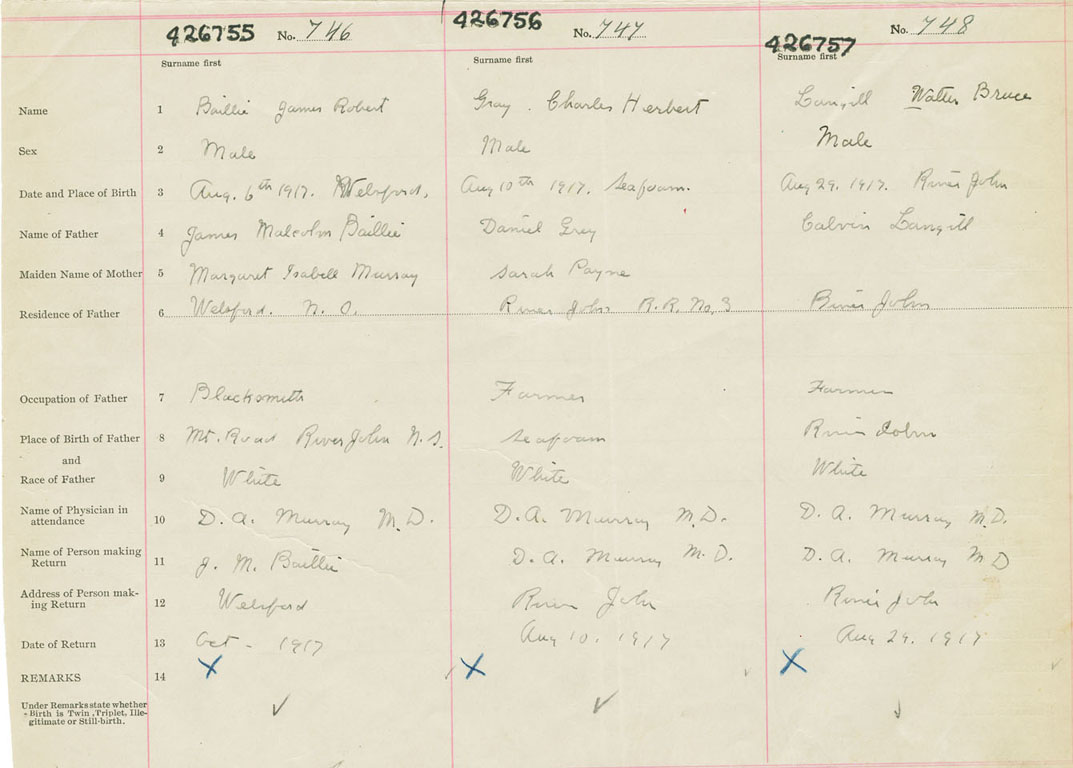 426755 No. 746 426756 No. 747 426757 No. 748
Surname first Surname first Surname first
Name 1 Baillie James Robert Gray. Charles Herbert Langill Walter Bruce
Sex 2 Male Male Male
Date and Place of Birth 3 Aug. 6th 1917. Welsford, Aug 10th 1917. Seafoam. Aug 29. 1917. River John
Name of Father 4 James Malcolm Baillie Daniel Gray Calvin Langill
Maiden Name of Mother 5 Margaret Isabell Murray Sarah Payne
Residence of Father 6 Welsford. N. S. River John R.R. No. 3 River John
Occupation of Father 7 Blacksmith Farmer Farmer
Place of Birth of Father 8 Mt. Road River John N.S. Seafoam River John
and
Race of Father 9 White White White
Name of Physician in
attendance 10 D. A. Murray M.D. D.A. Murray M.D. D. A. Murray M.D.
Name of Person making
Return 11 J. M. Baillie D. A. Murray M.D. D. A. Murray M D
Address of Person mak-
ing Return 12 Welsford River John River John
Date of Return 13 Oct - 1917 Aug 10. 1917 Aug 29. 1917
REMARKS 14 X X X
Under Remarks state whether
Birth is Twin, Triplet, Ille-
gitimate or Still-birth.